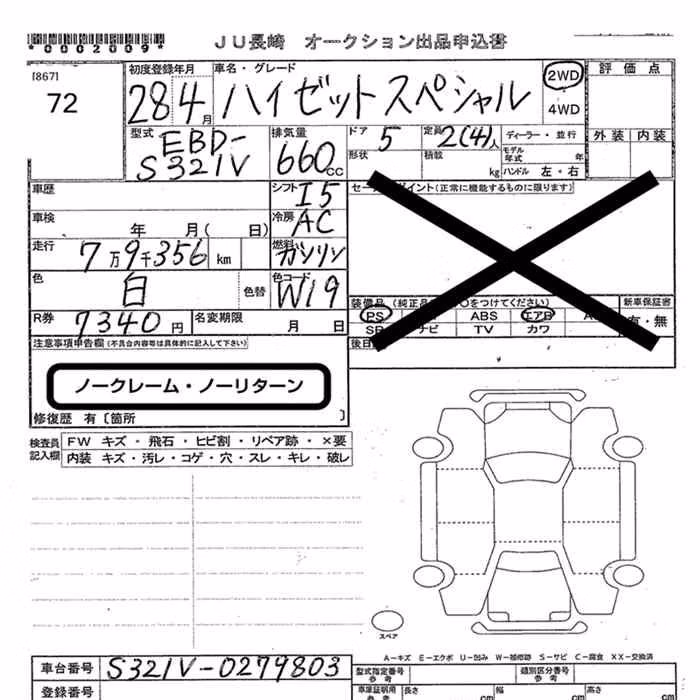 *0002009*
JU長崎 オークション出品申込書
[867]
72
初度登録年月 車名・グレード
28 4月 ハイゼットスペシャル
2WD
4WD
評価点
外装 内装
型式 EBD-
S321V
排気量
660cc
ドア 5
形状
定員 2(4)人
積載 kg
ディーラー・並行
モデル年式 年
ハンドル 左・右
車歴
シフト I5
セールスポイント(正常に機能するものに限ります)
車検 年 月( 日)
冷房 AC
走行 7万9千356km
燃料 ガソリン
色 白
色替
色コード W19
装備品(純正品 ○をつけてください)
新車保証書
PS ABS エアB
有・無
SR ナビ TV カワ
R券 7340円
名変期限 月 日
後日
注意事項申告欄(不具合内容等は具体的に記入して下さい)
ノークレーム・ノーリターン
修復歴 有〔箇所 〕
検査員記入欄
FW キズ・飛石・ヒビ割・リペア跡・×要
内装 キズ・汚レ・コゲ・穴・スレ・キレ・破レ
スペア
A－キズ E－エクボ U－凹み W－補修跡 S－サビ C－腐食 XX－交換済
車台番号 S321V-0279803
型式指定番号 参考
類別区分番号 参考
登録番号
車庫証明用 参考
長さ cm
幅 cm
高さ cm